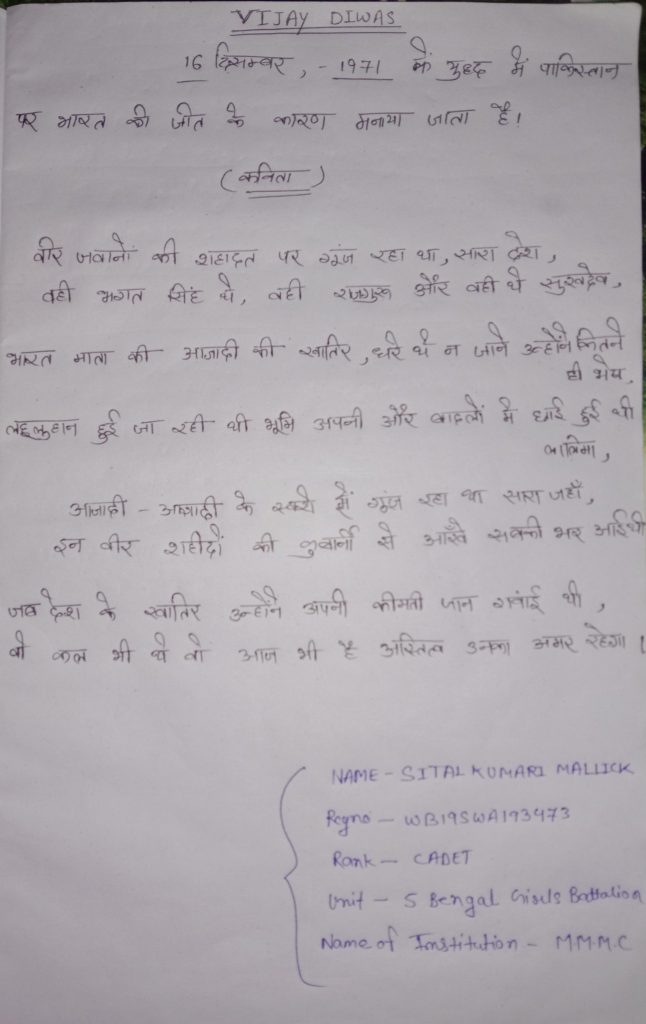 VIJAY DIWAS
16 दिसम्बर, - 1971 के युद्ध में पाकिस्तान
पर भारत की जीत के कारण मनाया जाता है।
(कविता)
वीर जवानों की शहादत पर गूंज रहा था, सारा देश,
वही भगत सिंह थे, वही राजगुरु और वही थे सुखदेव,
भारत माता की आजादी की खातिर, धरे थे न जाने उन्होंने कितने
ही भेष,
लहूलुहान हुई जा रही थी भूमि अपनी और बादलों में छाई हुई थी
कालिमा,
आजादी - आजादी के स्वरो में गूंज रहा था सारा जहाँ,
इन वीर शहीदों की कुबार्नी से आँखे सबकी भर आई थी
जब देश के खातिर उन्होंने अपनी कीमती जान गवांई थी,
वो कल भी थे वो आज भी है अस्तित्व उनका अमर रहेगा।
NAME - SITAL KUMARI MALLICK
Regno - WB19SWA193473
Rank - CADET
Unit - 5 Bengal Girls Battalion
Name of Institution - M.M.M.C